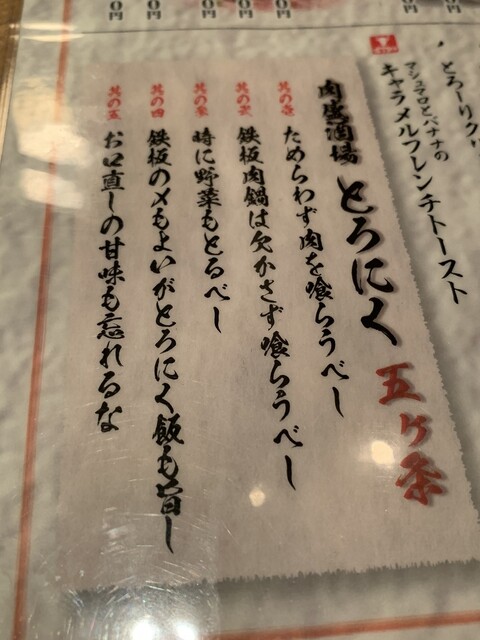 0円 0円 0円 0円 0円 0円
とろーりクリ
マシュマロとバナナの
キャラメルフレンチトースト
肉盛酒場 とろにく 五ヶ条
其の壱 ためらわず肉を喰らうべし
其の弐 鉄板肉鍋は欠かさず喰らうべし
其の参 時に野菜もとるべし
其の四 鉄板の〆もよいがとろにく飯も旨し
其の五 お口直しの甘味も忘れるな